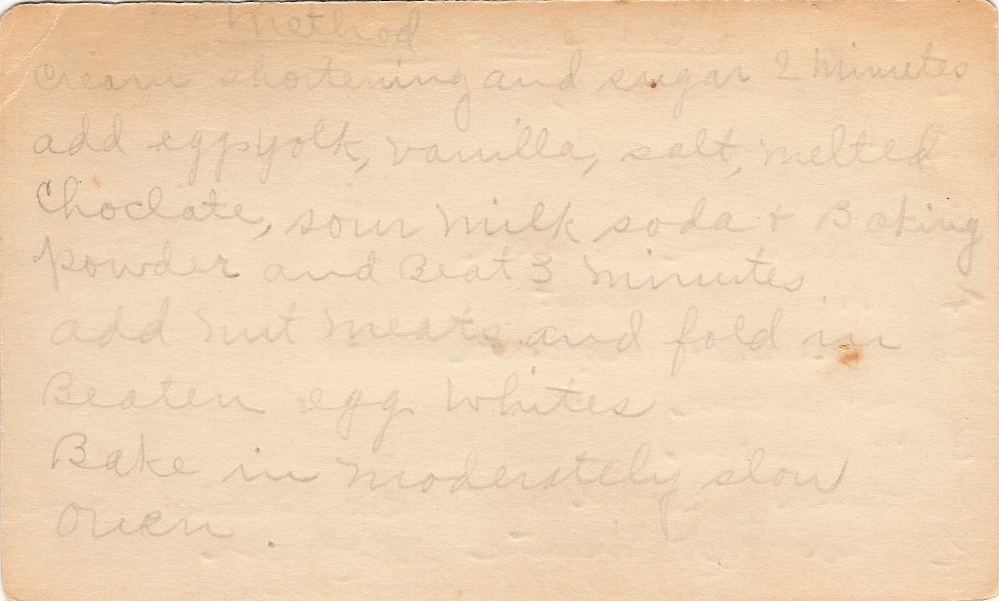 Method
Cream shortening and sugar 2 minutes
add egg yolk, vanilla, salt, melted
Choclate, sour milk soda + Baking
powder and Beat 3 minutes
add nut meats and fold in
Beaten egg whites.
Bake in moderately slow
oven.